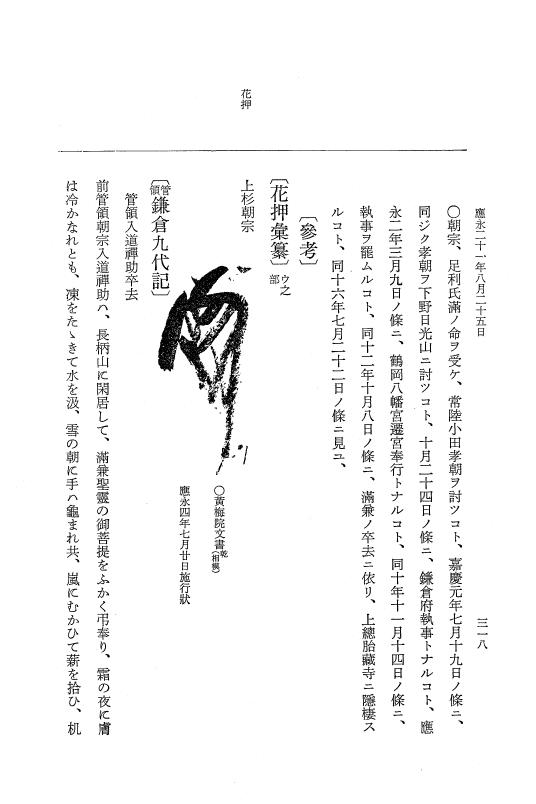 應永二十一年八月二十五日
三一八
〇朝宗、足利氏滿ノ命ヲ受ケ、常陸小田孝朝ヲ討ツコト、嘉慶元年七月十九日ノ條ニ、
同ジク孝朝ヲ下野日光山ニ討ツコト、十月二十四日ノ條ニ、鎌倉府執事トナルコト、應
永二年三月九日ノ條ニ、鶴岡八幡宮遷宮奉行トナルコト、同十年十一月十四日ノ條ニ、
執事ヲ罷ムルコト、同十二年十月八日ノ條ニ、滿兼ノ卒去ニ依リ、上總胎藏寺ニ隱棲ス
ルコト、同十六年七月二十二日ノ條ニ見ユ、
〔參考〕
〔花押彙纂〕ウ之部
花押
上杉朝宗
〇黃梅院文書乾(相模)
應永四年七月廿日施行狀
〔管領鎌倉九代記〕
管領入道禪助卒去
前管領朝宗入道禪助ハ、長柄山に閑居して、滿兼聖靈の御菩提をふかく弔奉り、霜の夜に膚
は冷かなれとも、凍をたゝきて水を汲、雪の朝に手ハ龜まれ共、嵐にむかひて薪を拾ひ、机